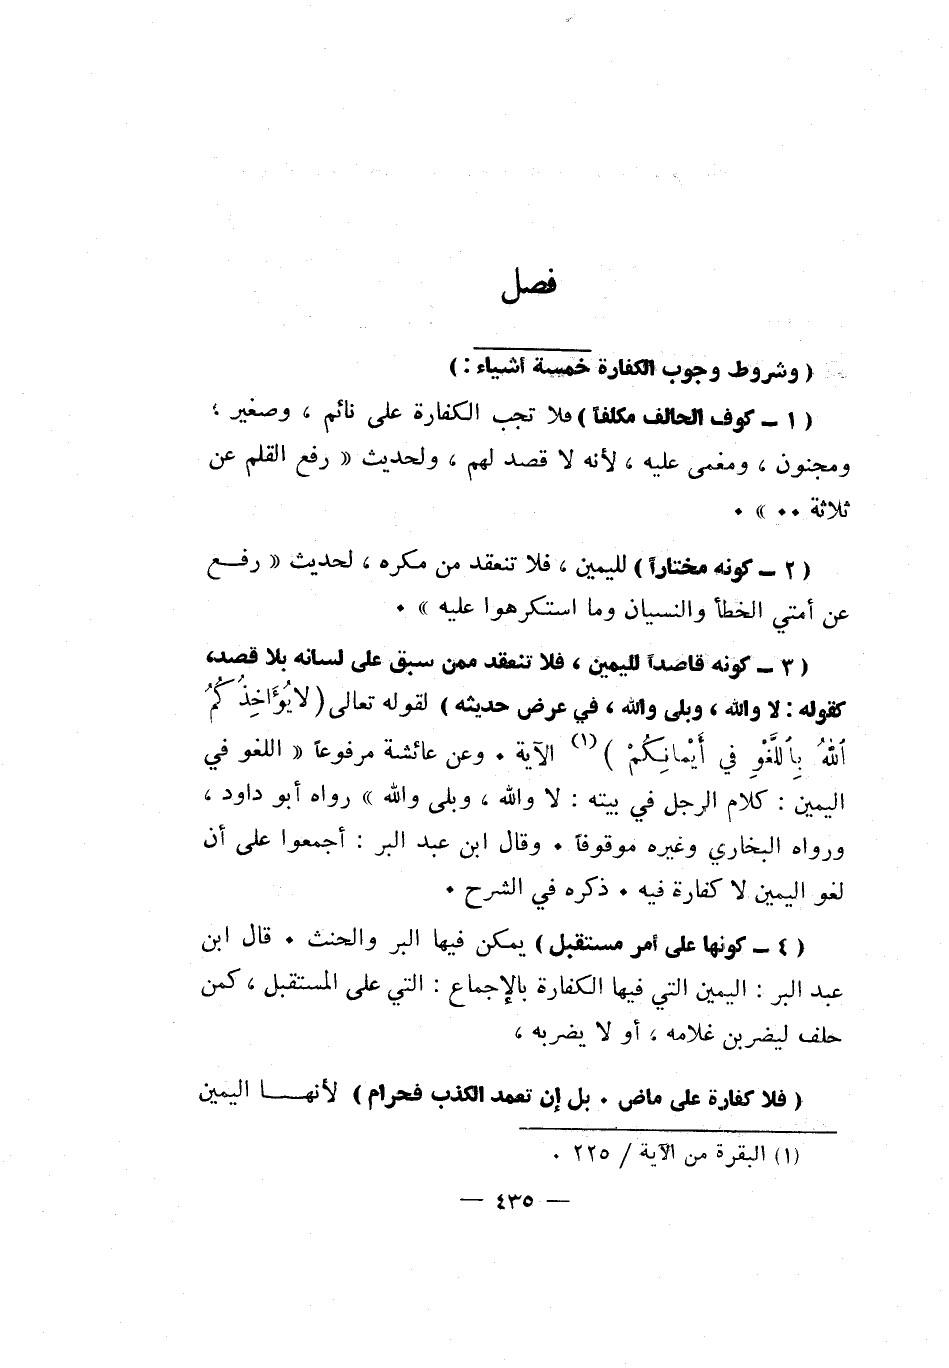 فصل
( وشروط وجوب الكفارة خمسة أشياء : )
( ١ ـ كوف الحالف مكلفاً ) فلا تجب الكفارة على نائم ، وصغير ؛
ومجنون ، ومغمى عليه ، لأنه لا قصد لهم ، ولحديث « رفع القلم عن
ثلاثة ٠٠ » ٠
( ٢ ـ كونه مختاراً ) لليمين ، فلا تنعقد من مكره ، لحديث « رفـع
عن أمتي الخطأ والنسيان وما استكرهوا عليه » ٠
( ٣ ـ كونه قاصداً لليمين ، فلا تنعقد ممن سبق على لسانه بلا قصد،
كقوله : لا والله ، وبلى والله ، في عرض حديثه ) لقوله تعالى ( لَا يُؤَاخِذُكُمُ
ٱللَّهُ بِٱللَّغْوِ فِي أَيْمَانِكُمْ ) (١) الآية ٠ وعن عائشة مرفوعاً « اللغو في
اليمين : كلام الرجل في بيته : لا والله ، وبلى والله » رواه أبو داود ،
ورواه البخاري وغيره موقوفاً ٠ وقال ابن عبد البر : أجمعوا على أن
لغو اليمين لا كفارة فيه ٠ ذكره في الشرح ٠
( ٤ ـ كونها على أمر مستقبل ) يمكن فيها البر والحنث ٠ قال ابن
عبد البر : اليمين التي فيها الكفارة بالإجماع : التي على المستقبل ، كمن
حلف ليضربن غلامه ، أو لا يضربه ،
( فلا كفارة على ماض ٠ بل إن تعمد الكذب فحرام ) لأنهـــا اليمين
(١) البقرة من الآية / ٢٢٥ .
— ٤٣٥ —